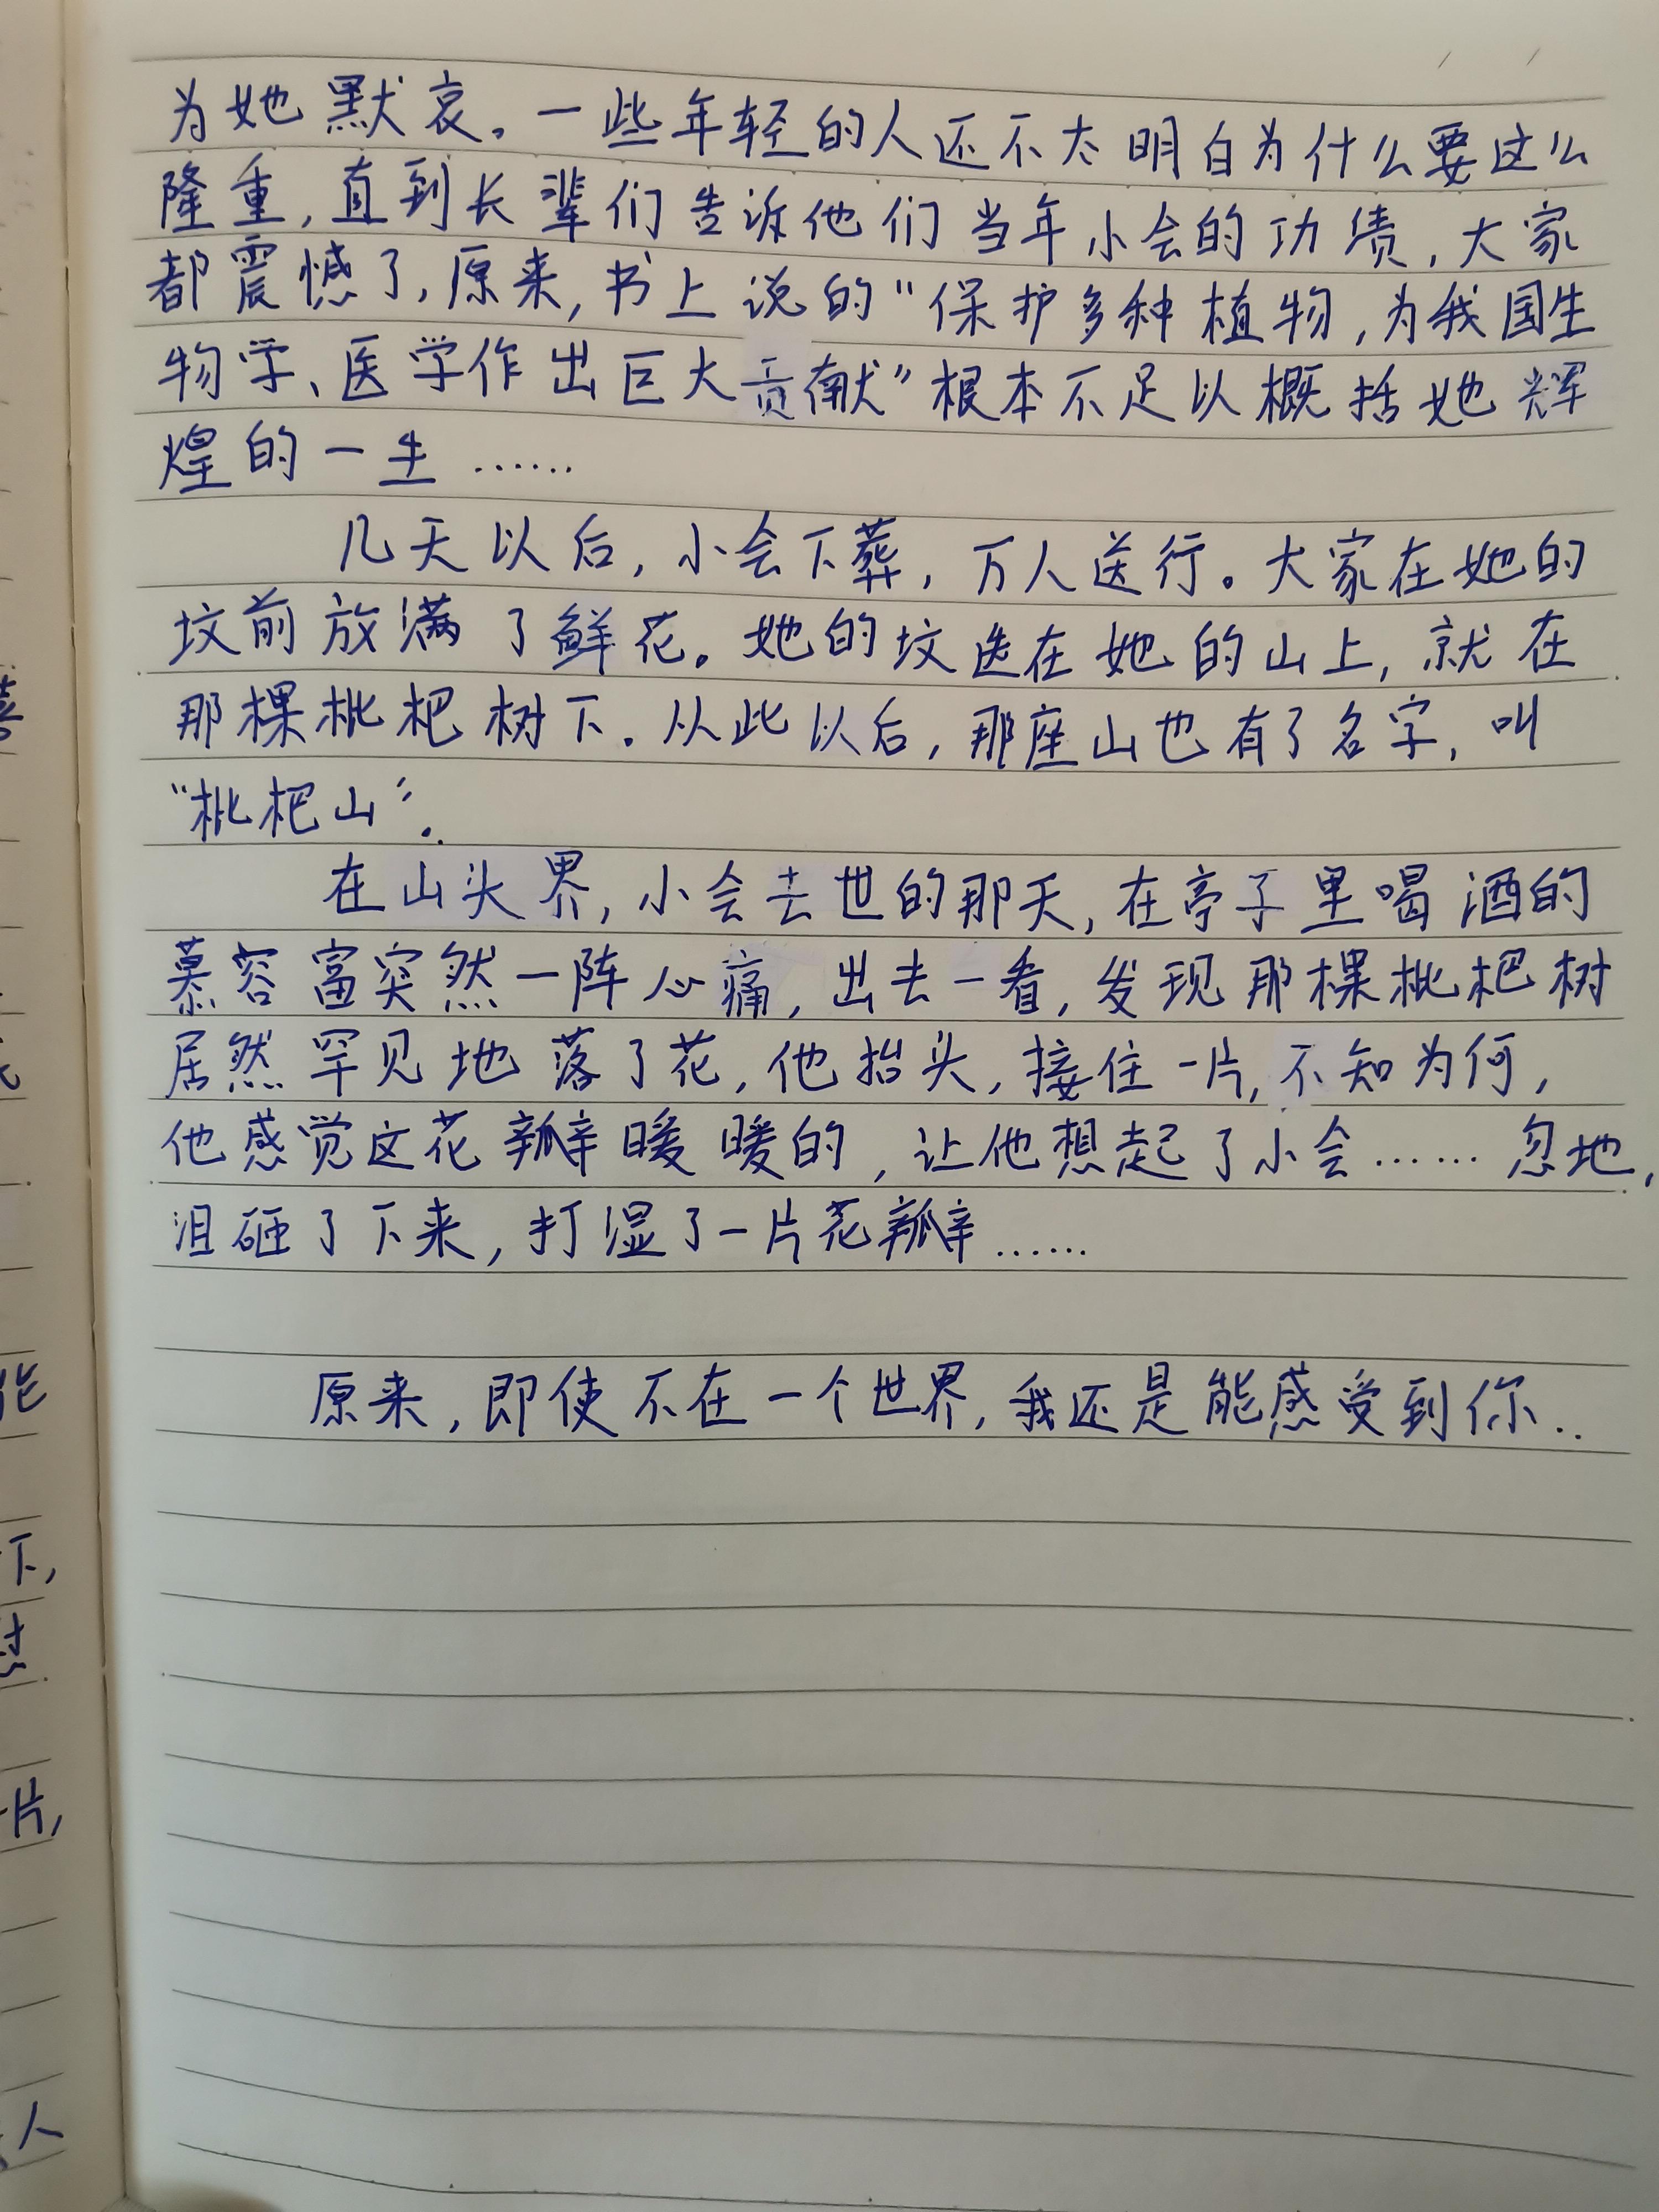 为她默哀。一些年轻的人还不太明白为什么要这么
隆重,直到长辈们告诉他们当年小会的功绩,大家
都震憾了,原来,书上说的“保护多种植物,为我国生
物学、医学作出巨大贡献”根本不足以概括她辉
煌的一生……
几天以后,小会下葬,万人送行。大家在她的
坟前放满了鲜花。她的坟选在她的山上,就在
那棵枇杷树下。从此以后,那座山也有了名字,叫
“枇杷山”。
在山头界,小会去世的那天,在亭子里喝酒的
慕容富突然一阵心痛,出去一看,发现那棵枇杷树
居然罕见地落了花,他抬头,接住一片,不知为何,
他感觉这花瓣暖暖的,让他想起了小会……忽地,
泪砸了下来,打湿了一片花瓣……
原来,即使不在一个世界,我还是能感受到你..
能
下,
片,
人